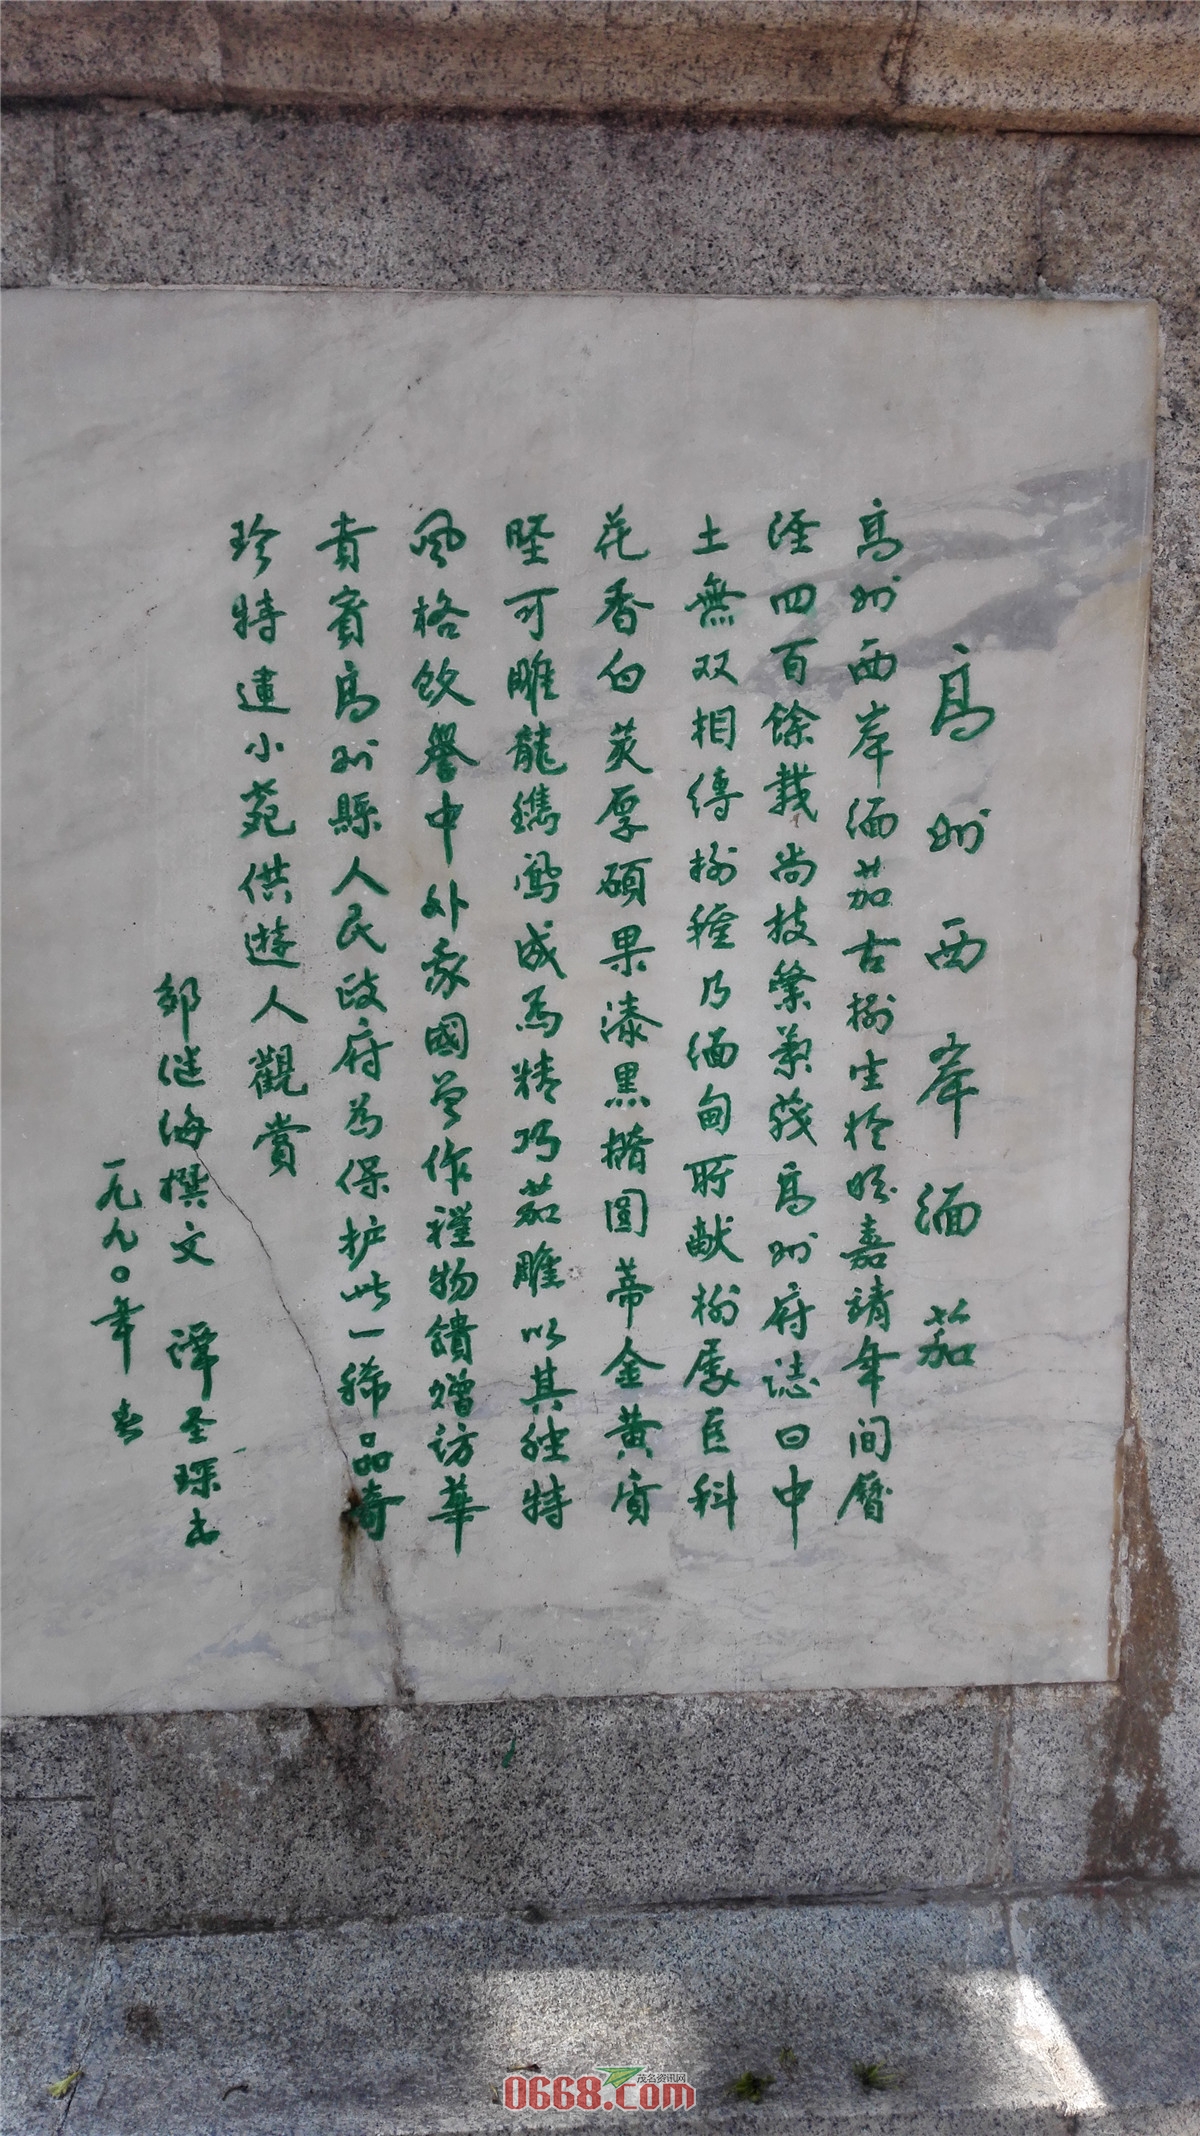 高州西岸缅茄
高州西岸缅茄古樹生於明嘉靖年间曆
经四百餘载尚枝繁葉茂高州府誌曰中
土無双相傳樹種乃缅甸所献樹屬巨科
花香白荚厚硕果漆黑椭圆蒂金黄質
坚可雕龍镌鳳成為精巧茄雕以其独特
風格饮譽中外我國曾作禮物馈赠访華
贵賓高州縣人民政府为保护此一稀品奇
珍特建小苑供遊人觀賞
郑继海撰文 譚圣琛书
一九九〇年春
茂名资讯网
0668.com